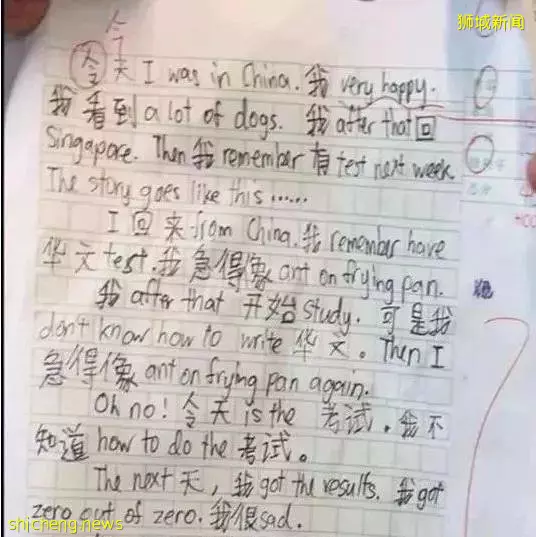 狮城新闻
今
令天 I was in China. 我 very happy.
我看到 a lot of dogs. 我 after that 回
Singapore. Then 我 remember 有 test next week.
The story goes like this ......
I 回来 from China. 我 remember have
华文 test. 我急得像 ant on frying pan.
我 after that 开始 study. 可是我
don't know how to write 华文。Then I
急得像 ant on frying pan again.
Oh no! 令天 is the 考试. 我不
知道 how to do the 考试。
The next 天, 我 got the results. 我 got
zero out of zero. 我很 sad.
shicheng.news